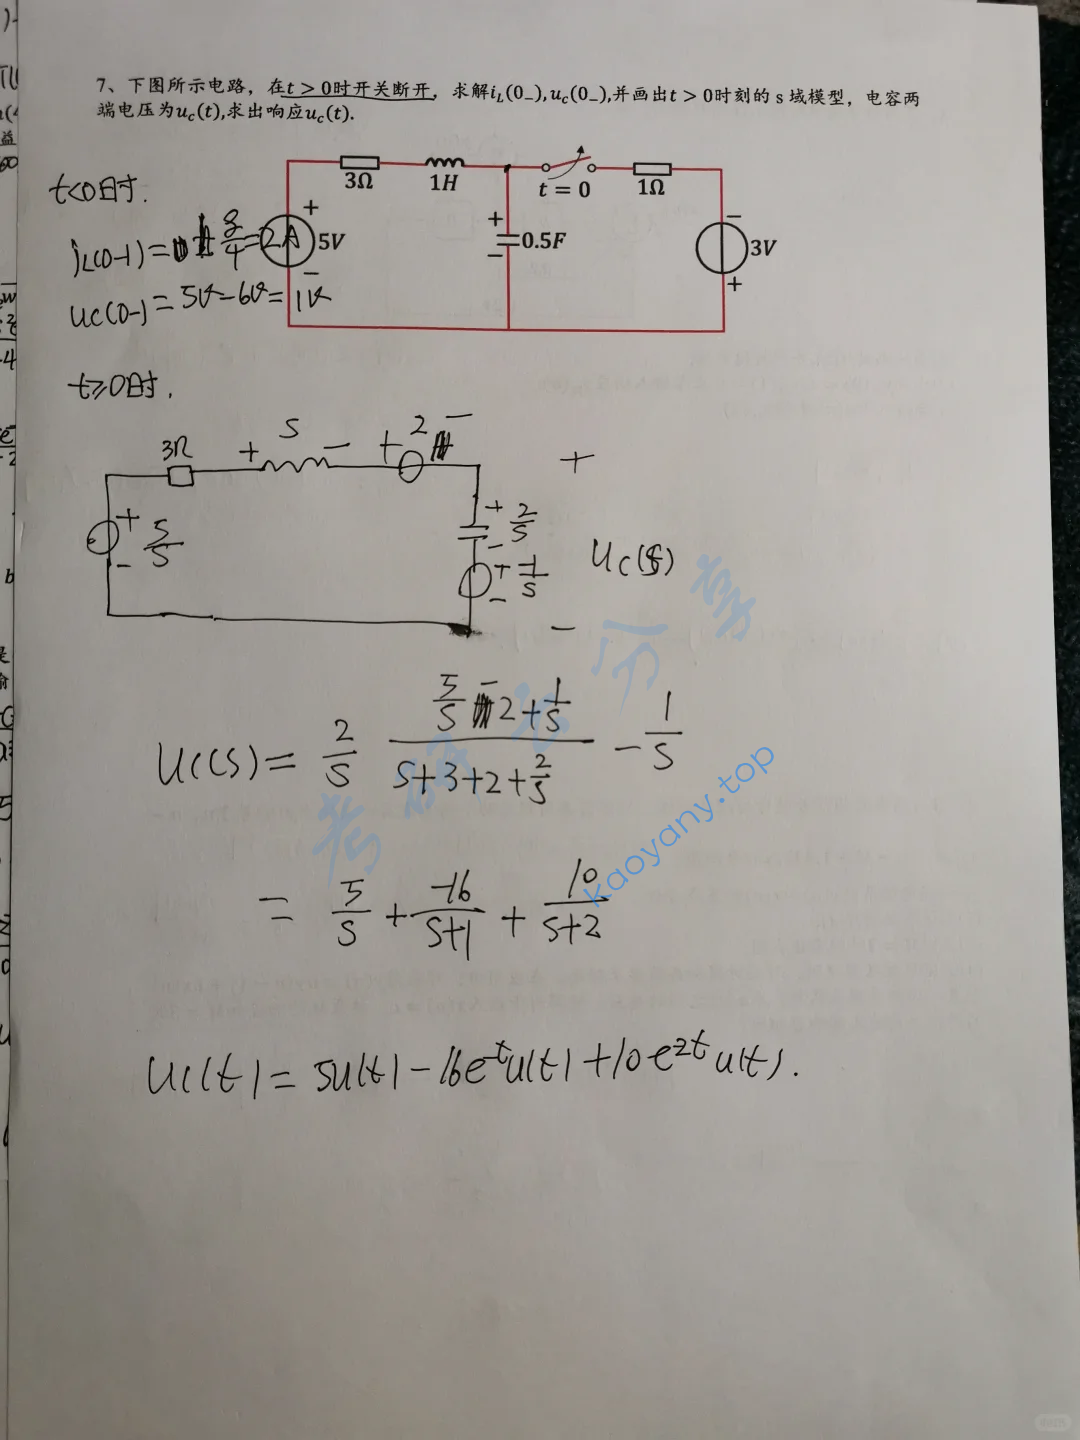 7、下图所示电路，在t > 0时开关断开，求解i_L(0_−),u_c(0_−),并画出t > 0时刻的 s 域模型，电容两
端电压为u_c(t),求出响应u_c(t).
3Ω 1H t = 0 1Ω
+ 5V −
+ 0.5F −
− 3V +
t<0时.
i_L(0-)= 8/4=2A
u_C(0-)=5V-6V=1V
t≥0时.
3Ω + S − + 2 −
+ 5/S −
+ 2/S −
+ -1/S −
+ U_C(S) −
U_C(S)= 2/S (5/S-2+1/S)/(S+3+2+2/S) - 1/S
= 5/S + -16/(S+1) + 10/(S+2)
U_C(t)=5u(t)-16e^-t u(t)+10e^2t u(t).
考研云分享
kaoyany.top